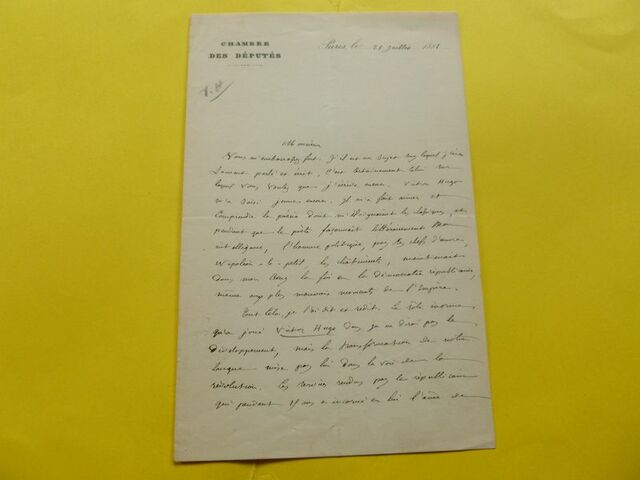 CHAMBRE
DES DÉPUTÉS
Paris, le 21 juillet 188
Monsieur
Vous m'embarrassez fort. S'il est un sujet sur lequel j'aie
souvent parlé et écrit, c'est certainement celui sur
lequel vous voulez que j'écrive encore. Victor Hugo
m'a saisi jeune encore. Il m'a fait aimer et
comprendre la poésie dont m'éloignaient les classiques, et
pendant que le poète façonnait littérairement mon
intelligence, l'homme politique, par les chefs d'œuvre,
Napoléon-le-petit, les châtiments, maintenait
dans mon âme la foi en la démocratie républicaine,
même aux plus mauvais moments de l'Empire.
Tout cela, je l'ai dit et redit. Le rôle énorme
qu'a joué Victor Hugo dans je ne dirai pas le
développement, mais la transformation de notre
langue mise par lui dans la voie de la
révolution. les services rendus par le républicain
qui pendant ans a incarné en lui l'âme de